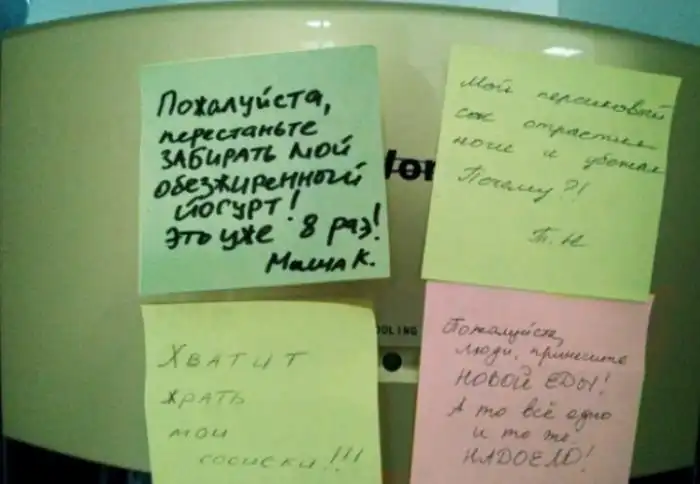 Пожалуйста,
перестаньте
ЗАБИРАТЬ МОЙ
обезжиренный
йогурт!
Это уже 8 раз!
Маша К.
Мой персиковый
сок отрастил
ноги и убежал
Почему?!
Т. Н
OLING
Хватит
жрать
мои
сосиски!!!
Пожалуйста,
люди, принесите
НОВОЙ ЕДЫ!
А то всё одно
и то же.
НАДОЕЛО!